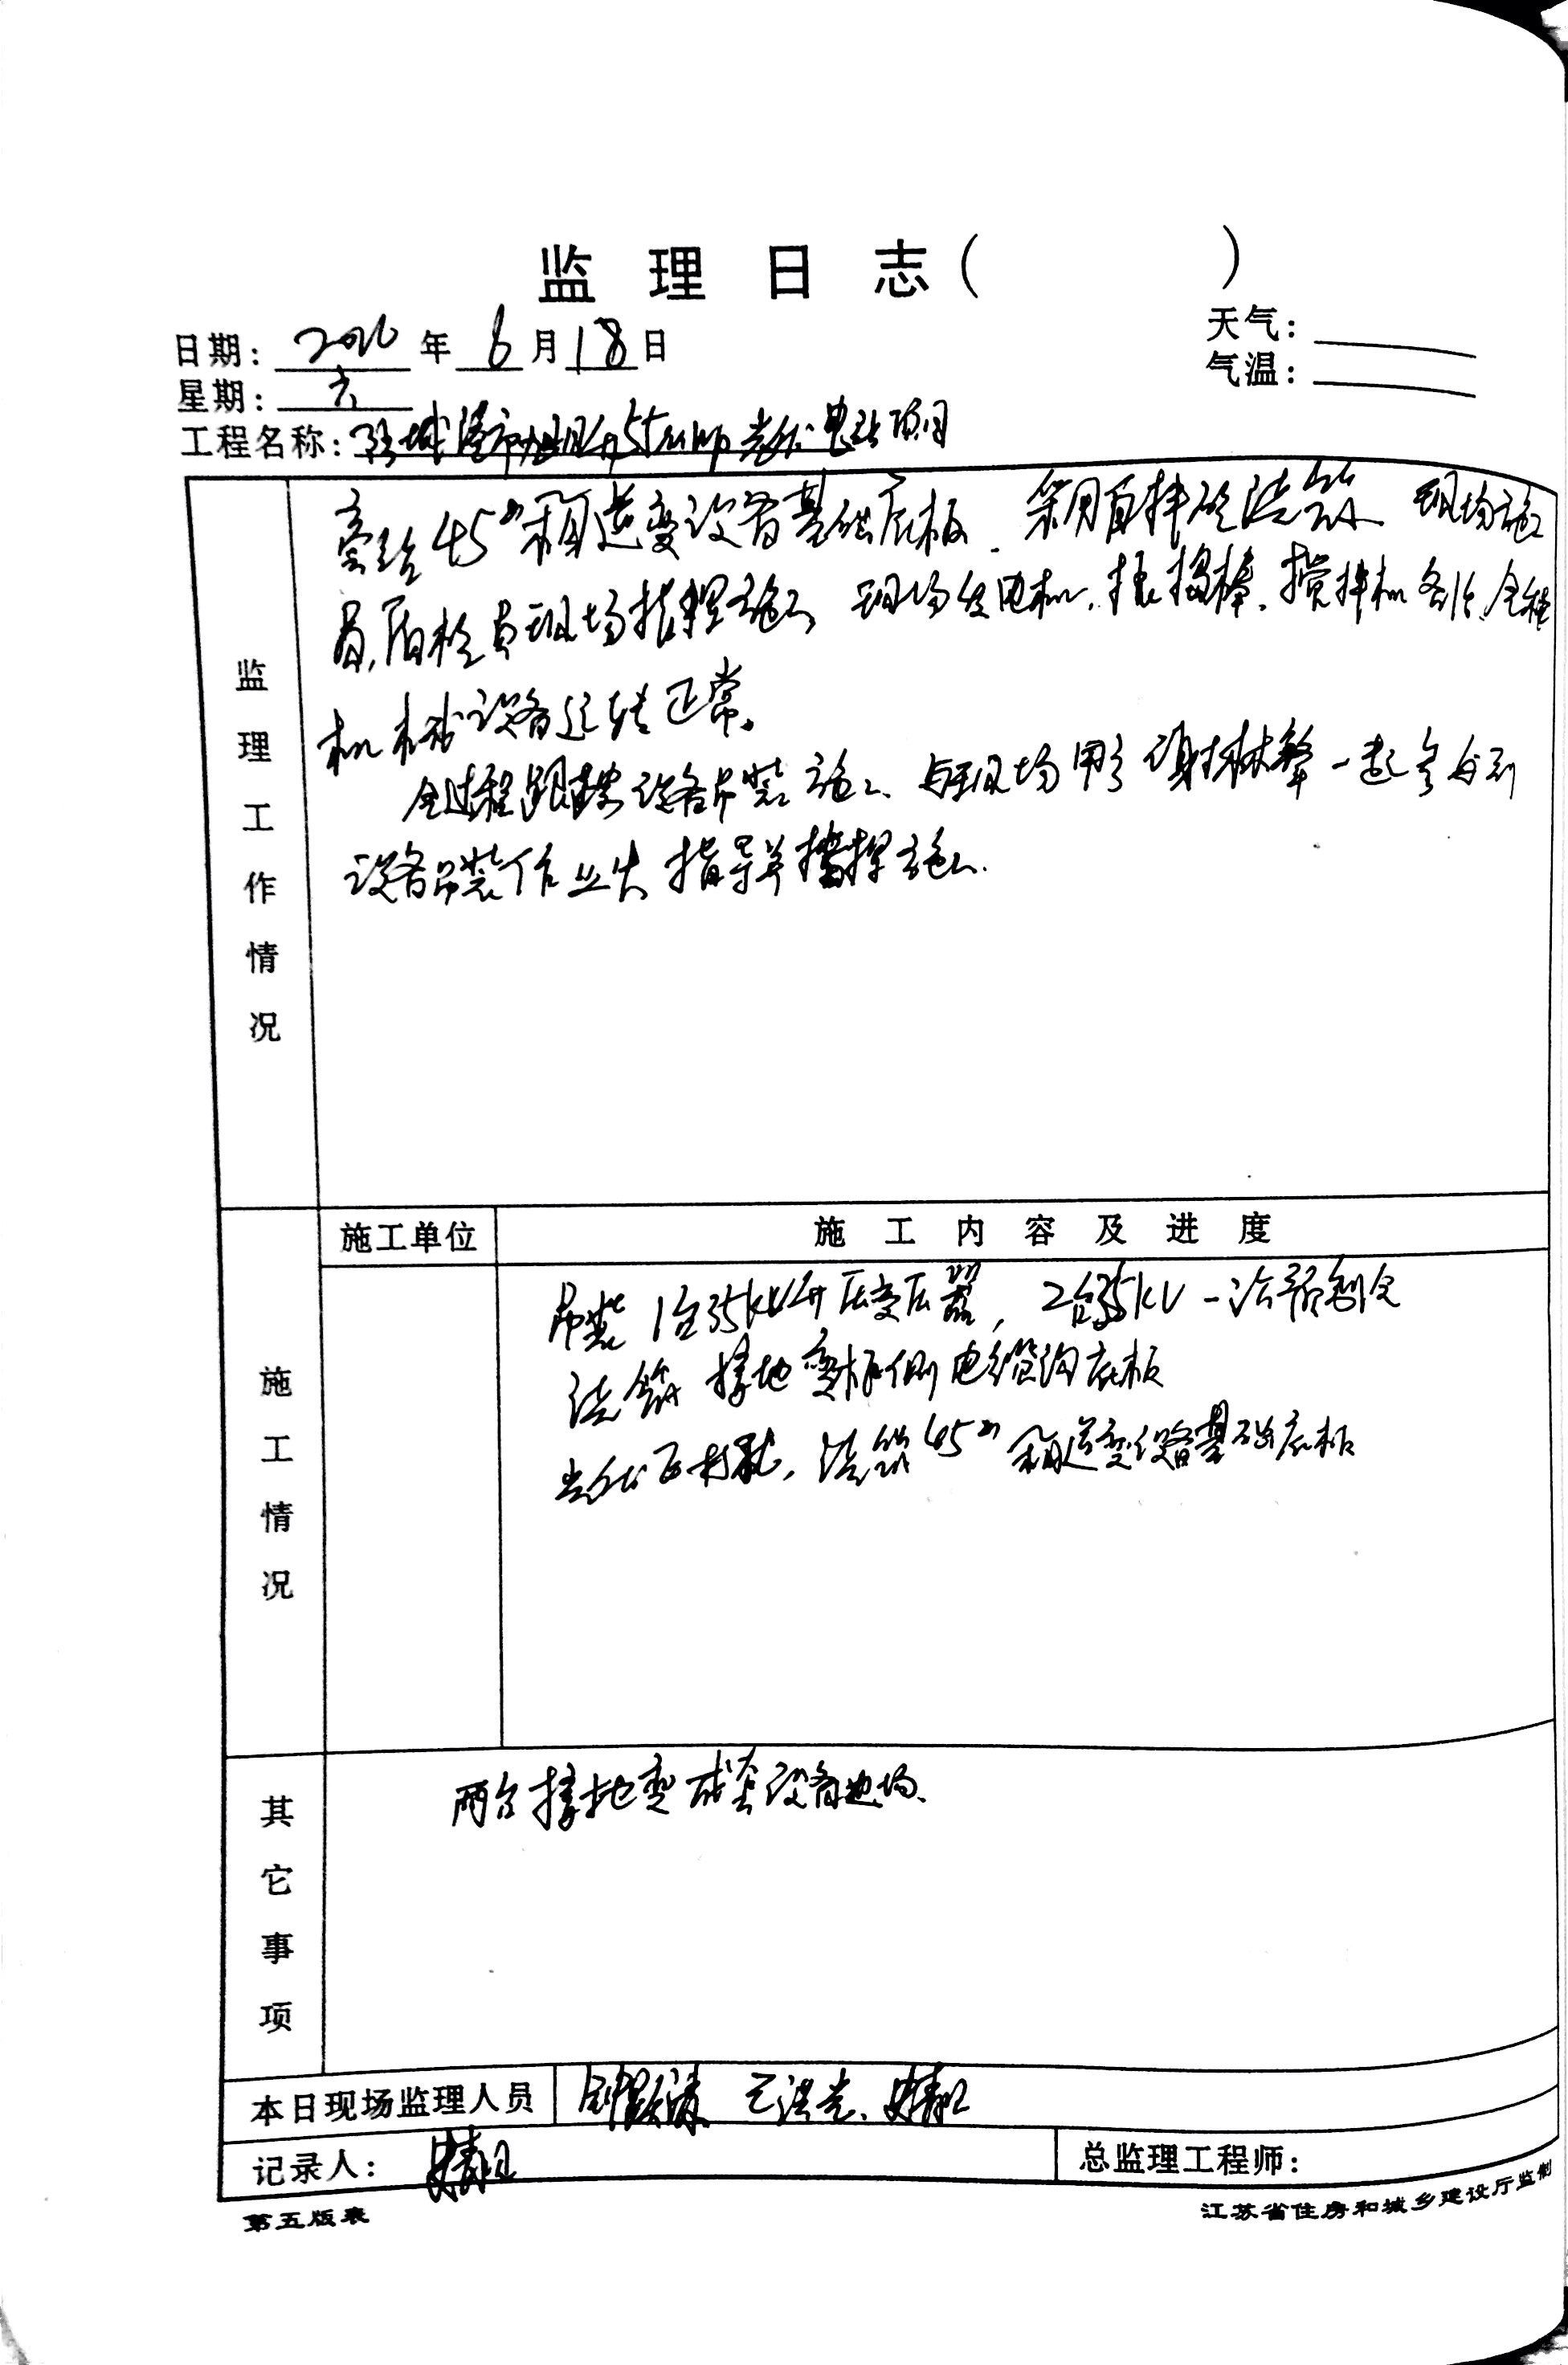 监理日志（ ）
日期： 2016 年 6 月 18 日
天气：
星期： 六
气温：
工程名称： 光伏电站项目
45# 箱逆变设备基础底板、采用自拌砼浇筑、现场施工
员、质检员现场指挥施工、现场发电机、振捣棒、搅拌机各1台、全部
机械设备运转正常。
全过程跟踪设备吊装施工、与现场 一起参与到
设备吊装作业 指导并指挥施工.
监理工作情况
施工单位
施工内容及进度
吊装1台35kV升压变压器，2台35kV一次预制仓
浇筑接地变 侧电缆沟底板
光伏区 ，浇筑45#箱逆变设备基础底板
施工情况
两台接地变成套设备进场、
其它事项
本日现场监理人员 王洪光、
记录人：
总监理工程师：
第五版表
江苏省住房和城乡建设厅监制